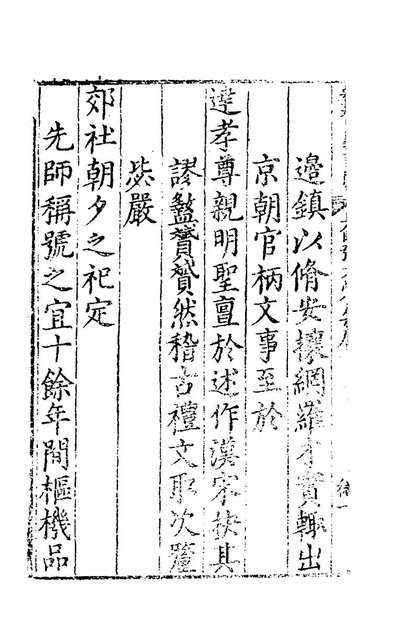 邊鎮以脩安攘網羅才實輙出
京朝官柄文事至於
達孝尊親明聖亶於述作漢宋抉其
謬盭贊贊然稽古禮文取次釐
毖嚴
郊社朝夕之祀定
先師稱號之宜十餘年間樞機品